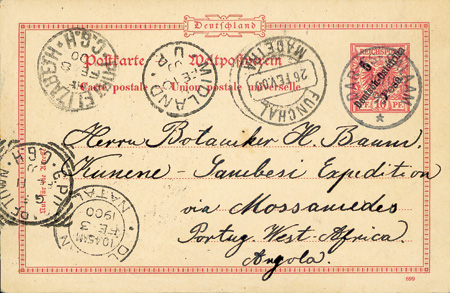 Deutschland
Postkarte Weltpostverein
Carte postale Union postale universelle
REICHSPOST
10 PF. 10
Deutsch-Ostafrika
PORT ELIZABETH C.G.H.
MIDLAND
FUNCHAL MADEIRA
26 FEV 00
DAR-ES-SALAAM
DURBAN NATAL
10.45 AM
FE 3
1900
Herrn Botaniker H. Baum,
Kunene Sambesi Expedition
via Mossamedes
Portug. West-Africa.
Angola.